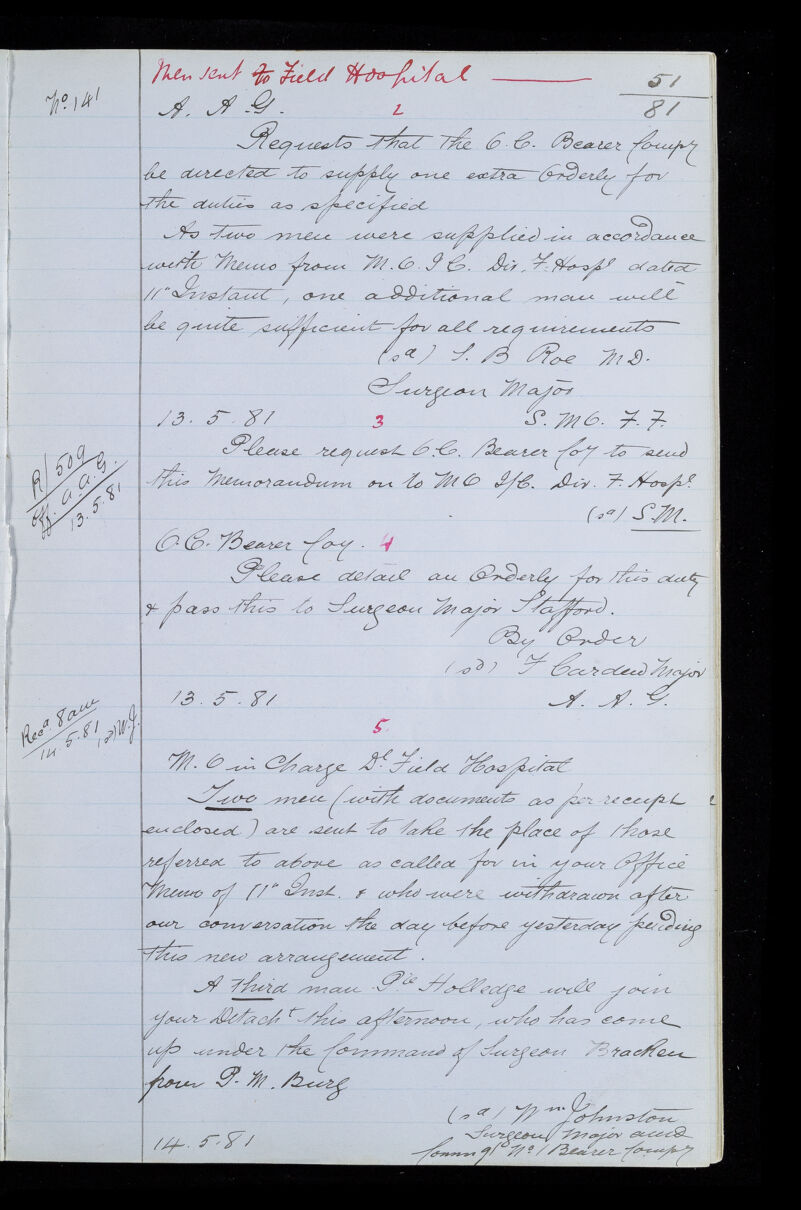 Men sent to Field Hospital —— 51
81
No. 141
A. A. G. 2
Requests that the O. C. Bearer Compy
be directed to supply one extra Orderly for
the duties as specified
As two men were supplied in accordance
with Memo from M. O. I C. Div. F. Hospl dated
11" Instant, one additional man will
be quite sufficient for all requirements
(sd) S. B Roe M D.
Surgeon Major
13. 5. 81 3 S. M O. F. F.
Please request O. C. Bearer Coy to send
this Memorandum on to M O I/C. Div. F. Hospl.
(sd) S. M.
R/509
A. A. G.
13. 5. 81
O. C. Bearer Coy. 4
Please detail an Orderly for this duty
& pass this to Surgeon Major Stafford.
By Order
(sd) F Carden Major
13. 5. 81 A. A. G.
Recd 8 am
14. 5. 81 (sd) W. J.
5.
M. O in Charge Dl Field Hospital
Two men (with documents as per receipt
enclosed) are sent to take the place of those
referred to above as called for in your Office
Memo of 11" Inst. & who were withdrawn after
our conversation the day before yesterday pending
this new arrangement.
A third man Pte Holledge will join
your Detacht this afternoon, who has come
up under the Command of Surgeon Bracken
from P. M. Burg
(sd) Wm Johnston
Surgeon Major
14. 5. 81 Commg No 1 Bearer Compy